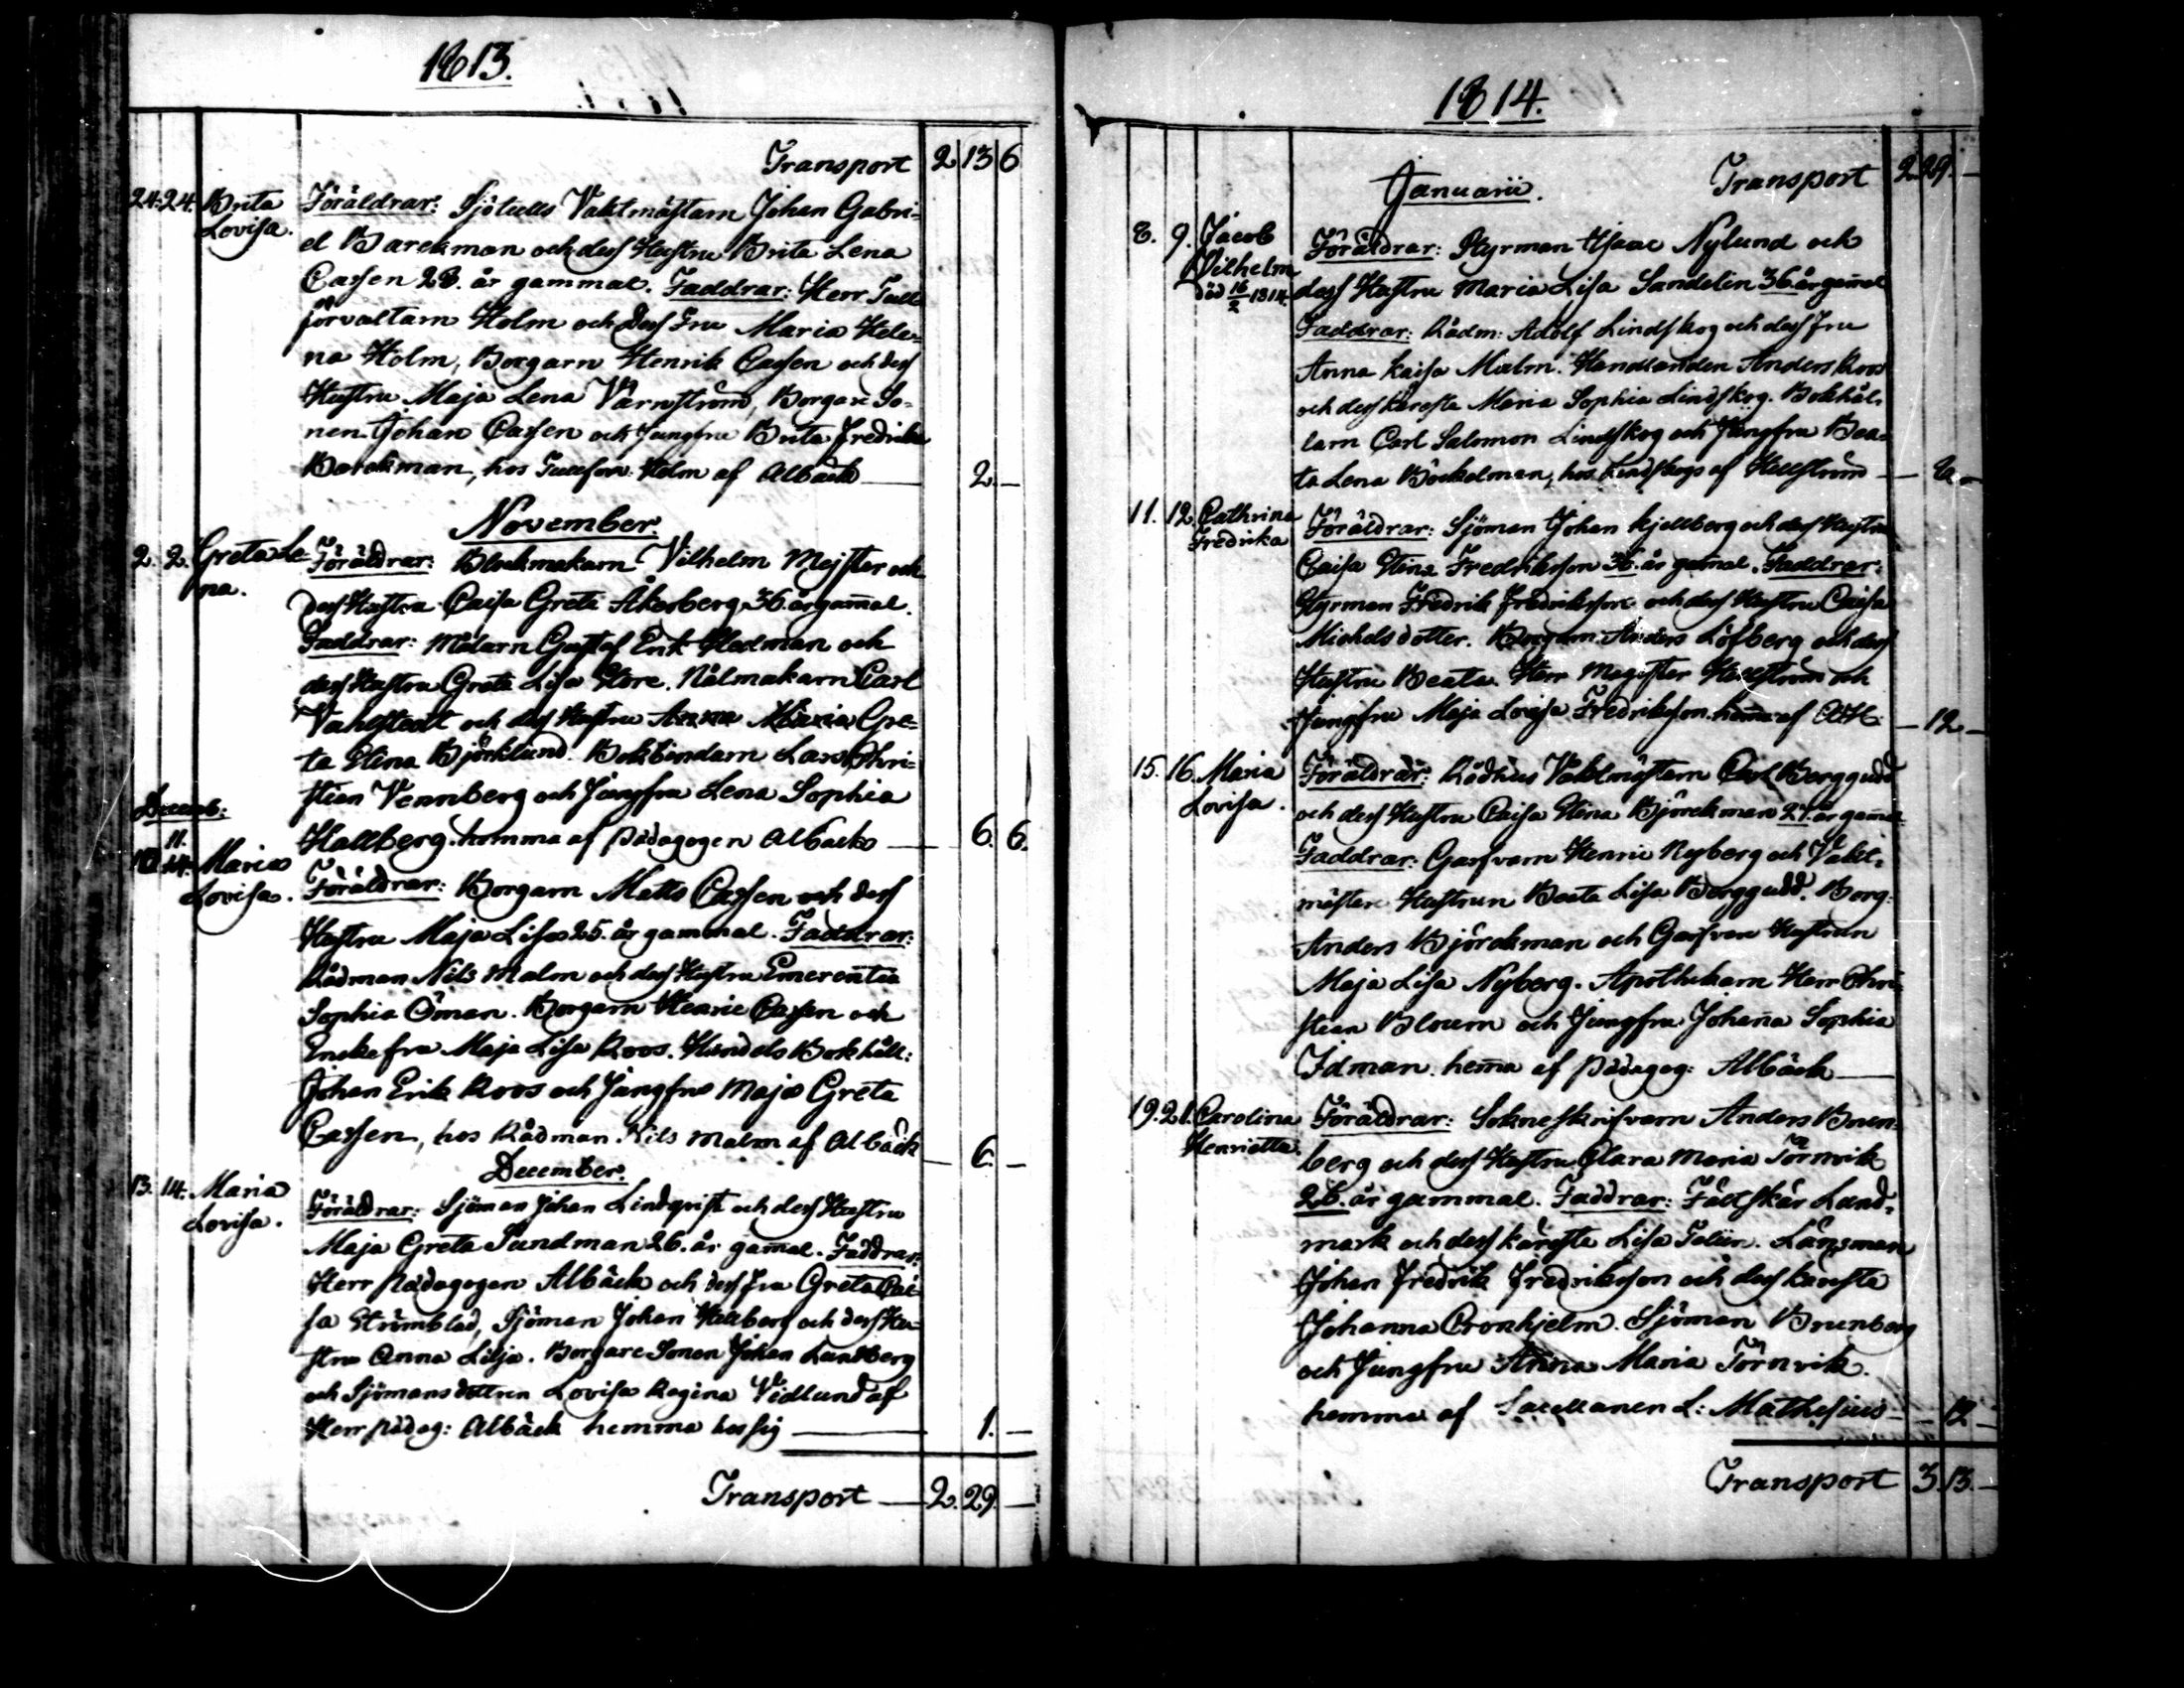 1813.
Transport 2 13 6
24. 24. Brita Lovisa. Föräldrar: Sjötulls Vaktmästarn Johan Gabri-
el Barckman och dess Hustru Brita Lena
Cassen 28. år gammal. Faddrar: Herr Tull
förvaltarn Holm och Dess Fru Maria Hele-
na Holm, Borgarn Henrik Cassen och dess
Hustru Maja Lena Värnström, Borgare So-
nen Johan Cassen och Jungfru Brita Fredrika
Barckman, hos Tullförv: Holm af Albäck — 2. —
November.
2. 2. Greta Le-na. Föräldrar: Blockmakarn Vilhelm Mejster och
dess Hustru Caisa Greta Åkerberg 36. år gam̄al.
Faddrar: Målarn Gustaf Erik Hedman och
dess Hustru Greta Lisa Store. Nålmakarn Carl
Vahlstedt och dess Hustru Anna Maria Gre-
ta Stina Björklund. Bokbindarn Lars Chri-
stian Vennberg och Jungfru Lena Sophia
Hallberg. hemma af Pädagogen Albäck — 6. 6.
Decemb:
11.
10. 14. Maria Lovisa. Föräldrar: Borgarn Matts Cassen och dess
Hustru Maja Lisa 25. år gammal. Faddrar:
Rådman Nils Malm och dess Hustru Emerentia
Sophia Öman. Borgarn Henric Cassen och
Enkefru Maja Lisa Roos. Handels Bokhåll:
Johan Erik Roos och Jungfru Maja Greta
Cassen, hos Rådman Nils Malm af Albäck — 6. —
December.
13. 14. Maria Lovisa. Föräldrar: Sjöman Johan Lindqvist och dess Hustru
Maja Greta Sundman 26. år gam̄al. Faddrar:
Herr Pädagogen Albäck och dess Fru Greta Cai-
sa Strömblad, Sjöman Johan Hallberg och dess Hu-
stru Anna Lilja. Borgare Sonen Johan Lundberg
och Sjömansdottren Lovisa Regina Vidlund af
Herr Pädag: Albäck hemma hos sig — 1. —
Transport — 2. 29. —
1814.
Januarii. Transport 2 29. —
8. 9. Jacob Vilhelm död 16/2 1814. Föräldrar: Styrman Isaac Nylund och
dess Hustru Maria Lisa Sandelin 36. år gam̄al
Faddrar: Rådm: Adolf Lindskog och dess Fru
Anna Kaisa Malm. Handlanden Anders Roos
och dess käresta Maria Sophia Lindskog. Bokhål-
larn Carl Salomon Lindskog och Jungfru Bea-
ta Lena Böckelman, hos Lindskogs af Hellström —
11. 12. Cathrina Fredrika Föräldrar: Sjöman Johan Kjellberg och dess Hustru
Caisa Stina Fredriksson 36. år gam̄al. Faddrar:
Styrman Fredrik Fredriksson och dess Hustru Caisa
Michelsdotter. Borgarn Anders Löfberg och dess
Hustru Beata. Herr Magister Hellström och
Jungfru Maja Lovisa Fredriksson. hem̄a af — 12 —
15. 16. Maria Lovisa. Föräldrar: Rådhus Vaktmästarn Carl Berggudd
och dess Hustru Caisa Stina Björckman 27. år gam̄al
Faddrar: Garfvarn Henric Nyberg och Vakt-
mästare Hustrun Beata Lisa Berggudd. Borg:
Anders Björckman och Garfvare Hustrun
Maja Lisa Nyberg. Apothekarn Herr Chri-
stian Bloum och Jungfru Johan̄a Sophia
Idman. hem̄a af Pädagog: Albäck —
19. 21. Carolina Henrietta. Föräldrar: Sokneskrifvarn Anders Brun-
berg och dess Hustru Clara Maria Törnvik
26. år gammal. Faddrar: Fältskär Land-
mark och dess käresta Lisa Polin. Länsman
Johan Fredrik Fredriksson och dess käresta
Johanna Cronhjelm. Sjöman Brunberg
och Jungfru Anna Maria Törnvik.
hemma af Sacellanen L: Mathesius — 12 —
Transport 3. 13. —